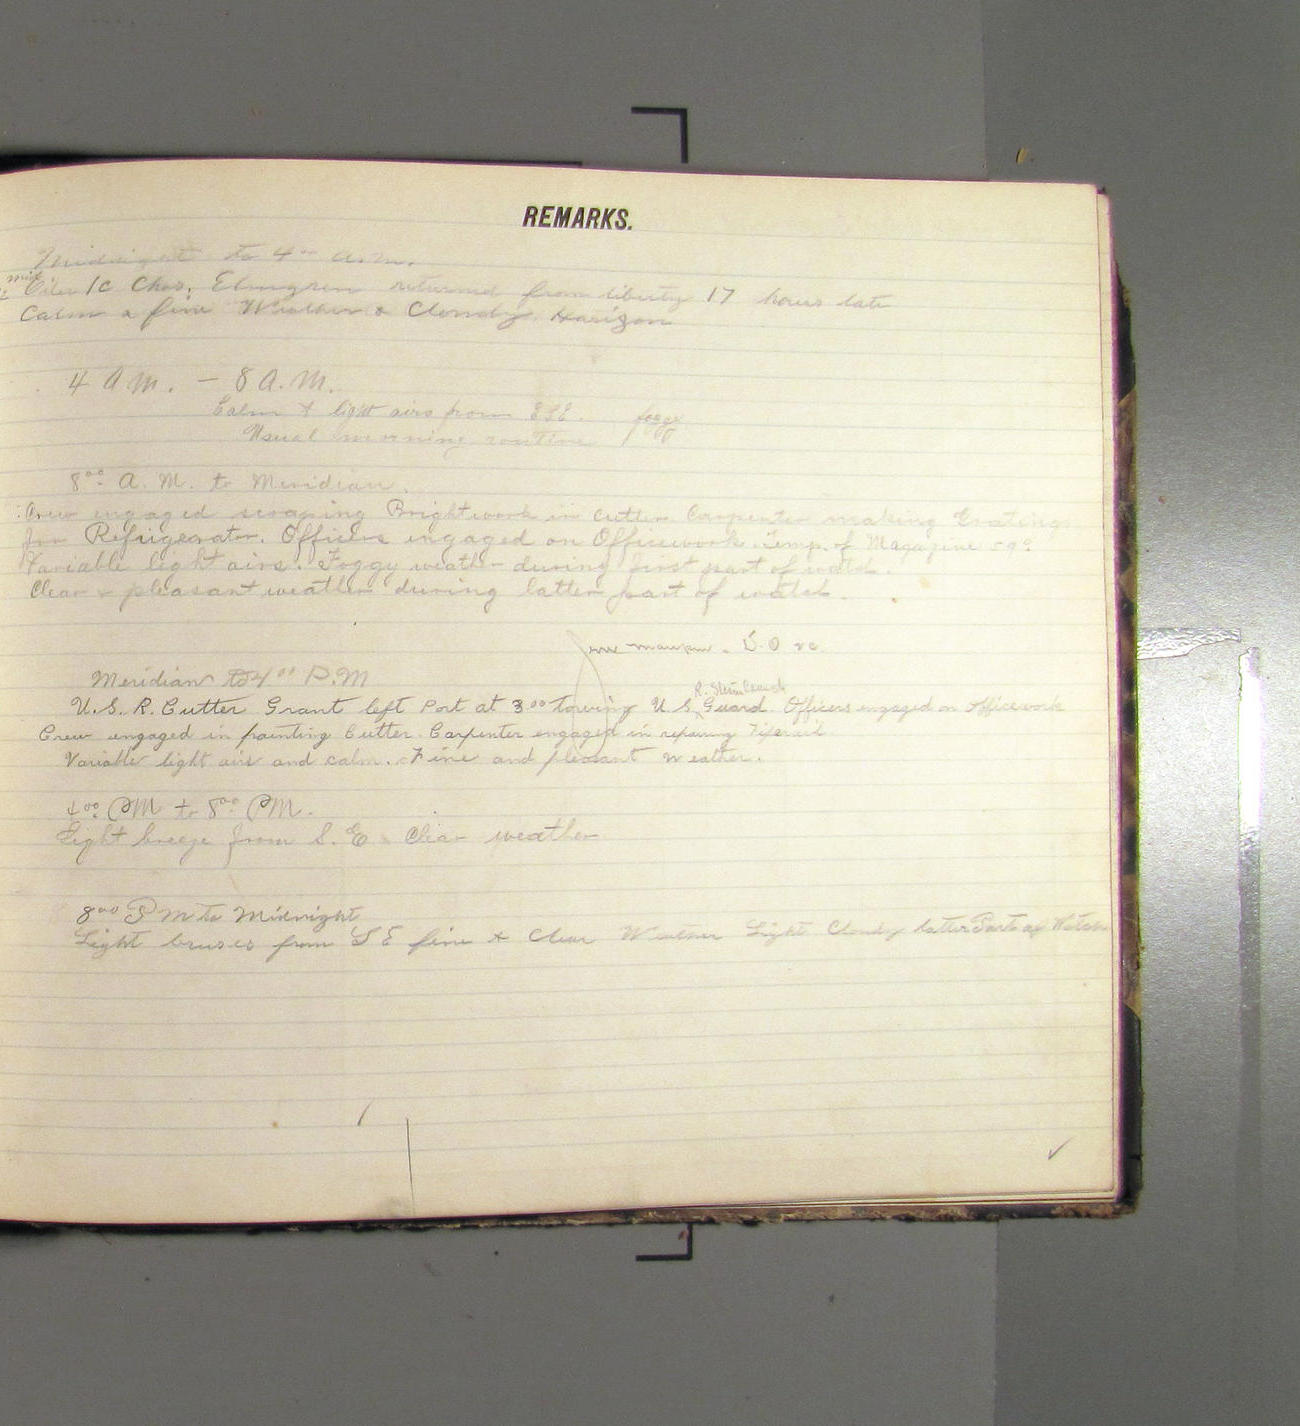 REMARKS.
Midnight to 4⁰⁰ a.m.
Oiler 1c Chas. Elmgren returned from liberty 17 hours late
Calm & fine Weather & Cloudy Harizon
4 A.M. – 8 A.M.
Calm & light airs from ESE. foggy
Usual morning routine
8⁰⁰ A.M. to Meridian.
Crew engaged scraping Brightwork in cutter. Carpenter making Gratings
for Refrigerator. Officers engaged on Officework. Temp. of Magazine 59°
Variable light airs. Foggy weather during first part of watch.
Clear & pleasant weather during latter part of watch.
Meridian to 4⁰⁰ P.M
U.S.R. Cutter Grant left Port at 3⁰⁰ towing U.S. R. Steam Launch Guard. Officers engaged on officework
Crew engaged in painting Cutter. Carpenter engaged in repairing
Variable light airs and calm. Fine and pleasant weather.
4⁰⁰ PM to 8⁰⁰ PM.
Light breeze from S.E. Clear weather
8⁰⁰ P M to Midnight
Light breeses from S E fine & Clear Weather Light Cloudy latter Part of Watch